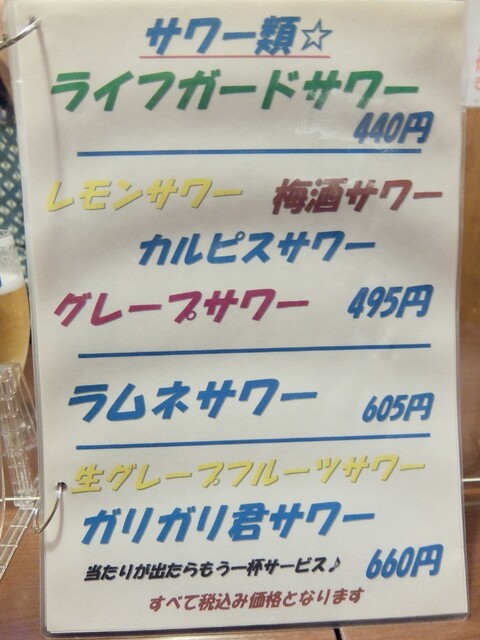 サワー類☆
ライフガードサワー
440円
レモンサワー 梅酒サワー
カルピスサワー
グレープサワー 495円
ラムネサワー 605円
生グレープフルーツサワー
ガリガリ君サワー
当たりが出たらもう一杯サービス♪ 660円
すべて税込み価格となります